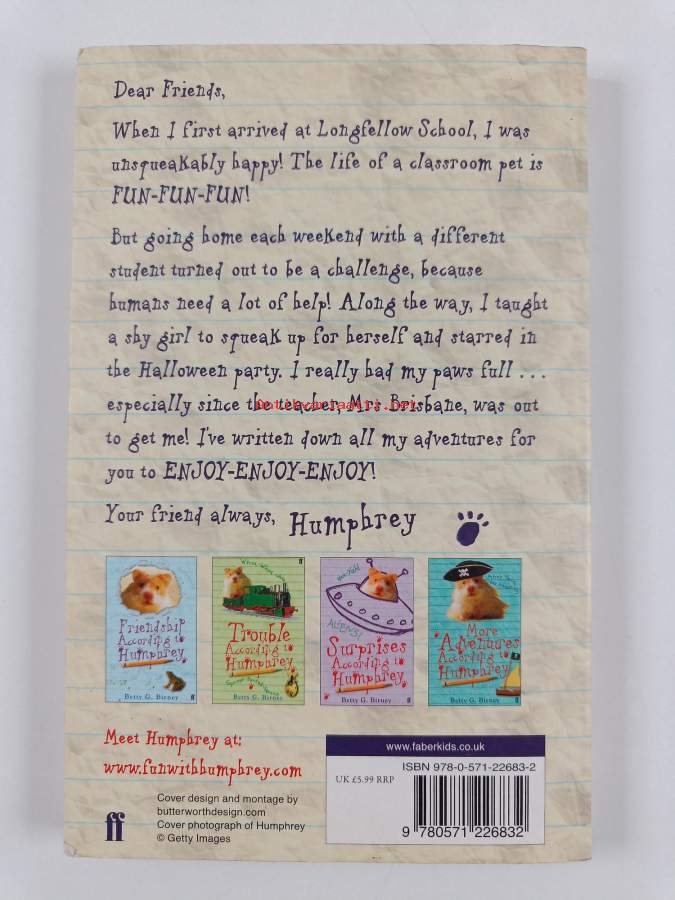 Dear Friends,
When I first arrived at Longfellow School, I was
unsqueakably happy! The life of a classroom pet is
FUN-FUN-FUN!
But going home each weekend with a different
student turned out to be a challenge, because
humans need a lot of help! Along the way, I taught
a shy girl to squeak up for herself and starred in
the Halloween party. I really had my paws full . . .
especially since the teacher, Mrs Brisbane, was out
to get me! I've written down all my adventures for
you to ENJOY-ENJOY-ENJOY!
Your friend always, Humphrey
Friendship
According to
Humphrey
Betty G. Birney
Trouble
According to
Humphrey
Betty G. Birney
ALIENS!
Surprises
According to
Humphrey
Betty G. Birney
More
Adventures
According to
Humphrey
Betty G. Birney
Meet Humphrey at:
www.funwithhumphrey.com
ff
Cover design and montage by
butterworthdesign.com
Cover photograph of Humphrey
© Getty Images
www.faberkids.co.uk
UK £5.99 RRP
ISBN 978-0-571-22683-2
9 780571 226832